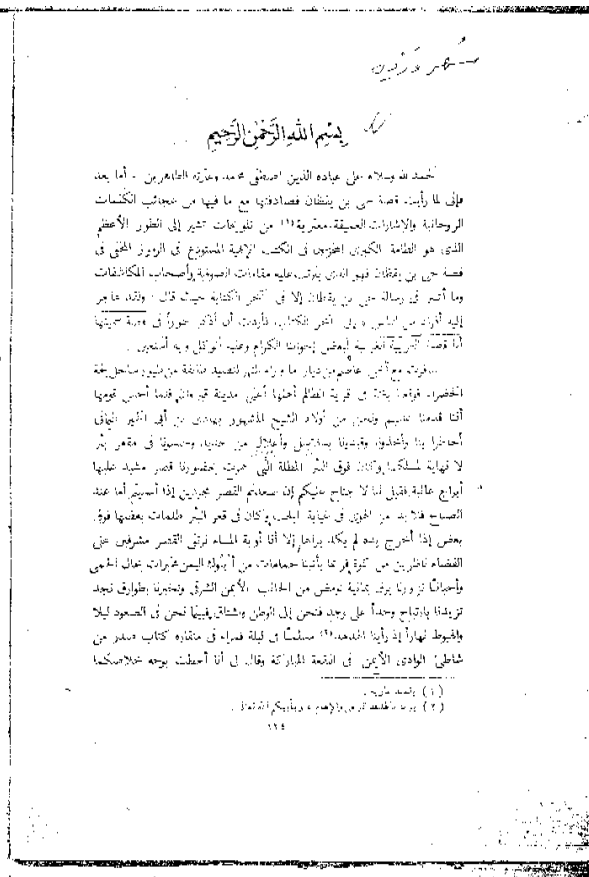 بسم الله الرحمن الرحيم
الحمد لله وسلام على عباده الذين اصطفى محمد وعترته الطاهرين . أما بعد
فإني لما رأيت قصة حي بن يقظان فصادفتها مع ما فيها من عجائب الكلمات
الروحانية والإشارات العميقة متعرية (١) من تلويحات تشير إلى الطور الأعظم
الذي هو الطامة الكبرى المخزون في الكتب الإلهية المستودع في الرموز المخفى في
قصة حي بن يقظان فهو الذي يترتب عليه مقامات الصوفية وأصحاب المكاشفات
وما أشير في رسالة حي بن يقظان إلا في آخر الكتابة حيث قال : ولقد هاجر
إليه أفراد من الناس إلى آخر الكتاب فأردت أن أذكر طوراً في قصة سميتها
أنا قصة الغريبة الغربية لبعض إخواننا الكرام وعليه أتوكل وبه أستعين .
سافرت مع أخي عاصم من ديار ما وراء النهر لنصيد طائفة من طيور ساحل لجة
الخضراء فوقعنا بغتة في قرية الظالم أهلها أعني مدينة قيروان فلما أحس قومها
أننا قدمنا عليهم ونحن من أولاد الشيخ المشهور بهادي بن أبي الخير اليماني
أحاطوا بنا وأخذونا وقيدونا بسلاسل وأغلال من حديد وحبسونا في مقعر بئر
لا نهاية لسمكها وكان فوق البئر المعطلة التي عمرت بحضورنا قصر مشيد عليها
أبراج عالية فقيل لنا لا جناح عليكم إن صعدتم القصر مجردين إذا أمسيتم أما عند
الصباح فلا بد من الهوي في غيابة الجب وكان في قعر البئر ظلمات بعضها فوق
بعض إذا أخرج يده لم يكد يراها إلا أنا أوبة المساء نرتقي القصر مشرفين على
الفضاء ناظرين من كوة فربما يأتينا حمامات من أيوك اليمن مخبرات بحال الحمى
وأحياناً تزورنا بروق يمانية تومض من الجانب الأيمن الشرقي وتخبرنا بطوارق نجد
تزيدنا بارتياح وجداً على وجد فنحن إلى الوطن ونشتاق فبينا نحن في الصعود ليلا
والهبوط نهاراً إذ رأينا الهدهد (٢) مسلماً في ليلة قمراء في منقاره كتاب صدر من
شاطئ الوادي الأيمن في البقعة المباركة وقال لي أنا أحطت بوجه خلاصكما
(١) يقصد عارية .
(٢)
١٣٤